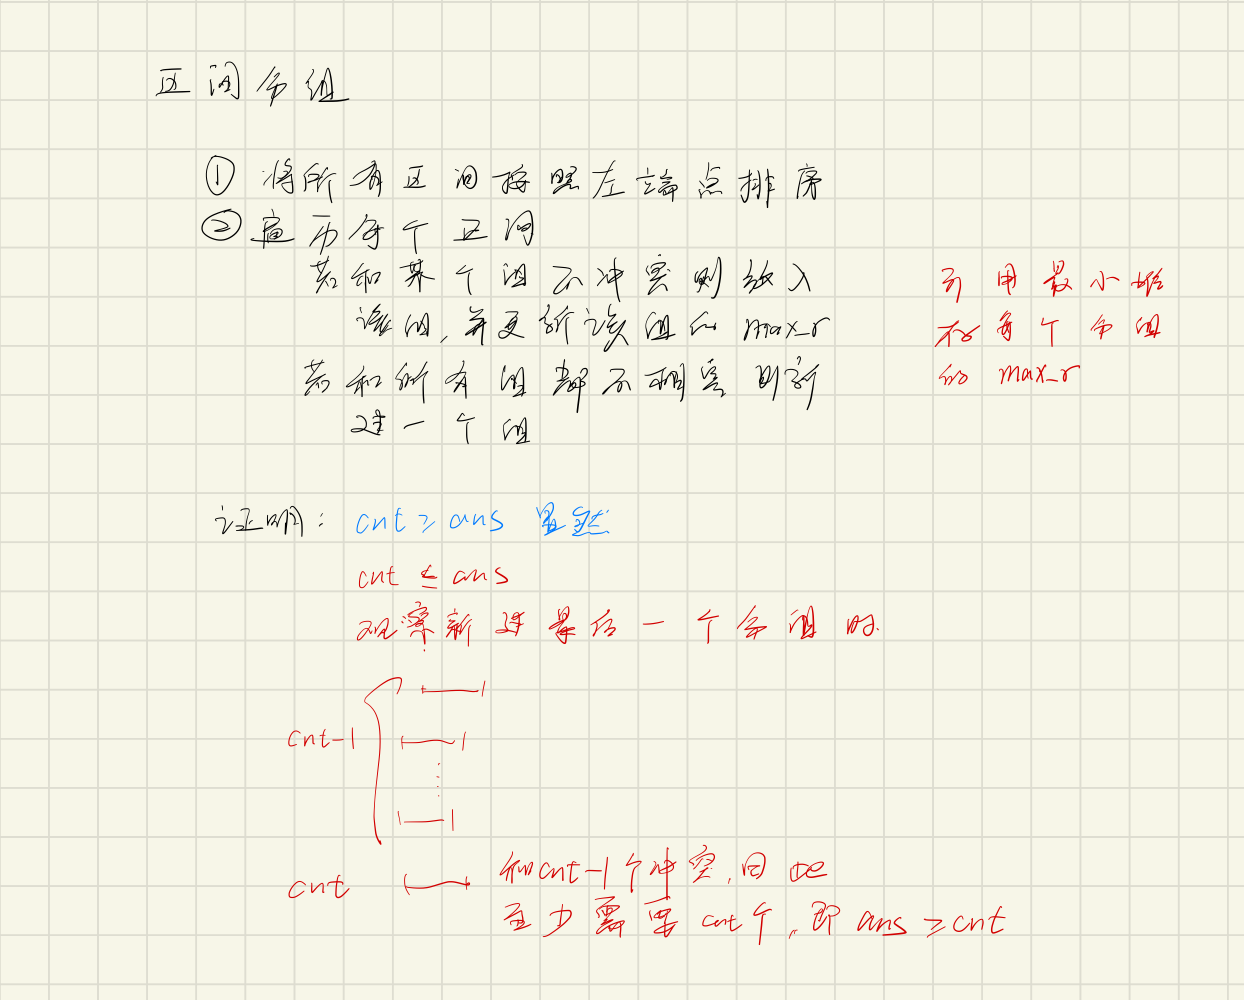 区间分组
① 将所有区间按照左端点排序
② 遍历每个区间
若和某个组不冲突则放入
该组,并更新该组的 max_r
若和所有组都不相容则新
建一个组
可用最小堆
存每个分组
的 max_r
证明: cnt ≥ ans 显然
cnt ≤ ans
观察新建最后一个分组时
cnt-1
cnt
和cnt-1个冲突,因此
至少需要 cnt个,即 ans ≥ cnt